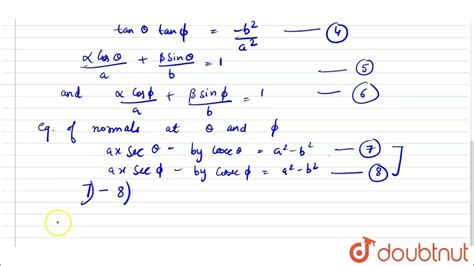 tan θ tan ϕ = -b²/a² —— ④
α cos θ/a + β sin θ/b = 1 —— ⑤
and α cos ϕ/a + β sin ϕ/b = 1 —— ⑥
eq. of normals at θ and ϕ
ax sec θ - by cosec θ = a² - b² —— ⑦
ax sec ϕ - by cosec ϕ = a² - b² —— ⑧
7) - 8)
doubtnut